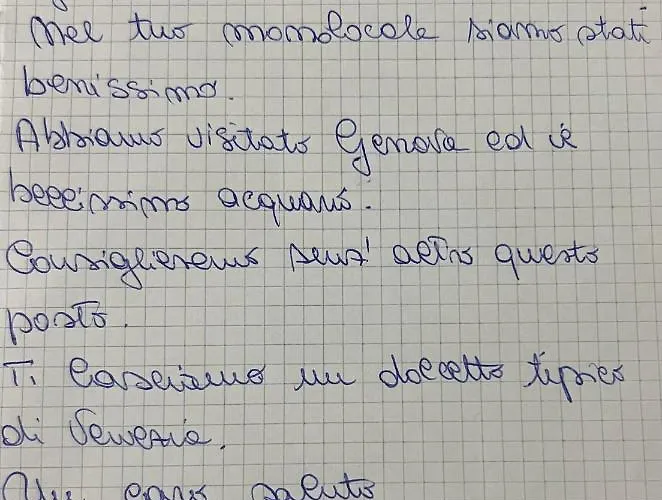 Nel tuo monolocale siamo stati
benissimo.
Abbiamo visitato Genova ed è
bellissimo acquario.
Consiglieremo senz'altro questo
posto.
Ti lasciamo un dolcetto tipico
di Venezia.
Un caro saluto